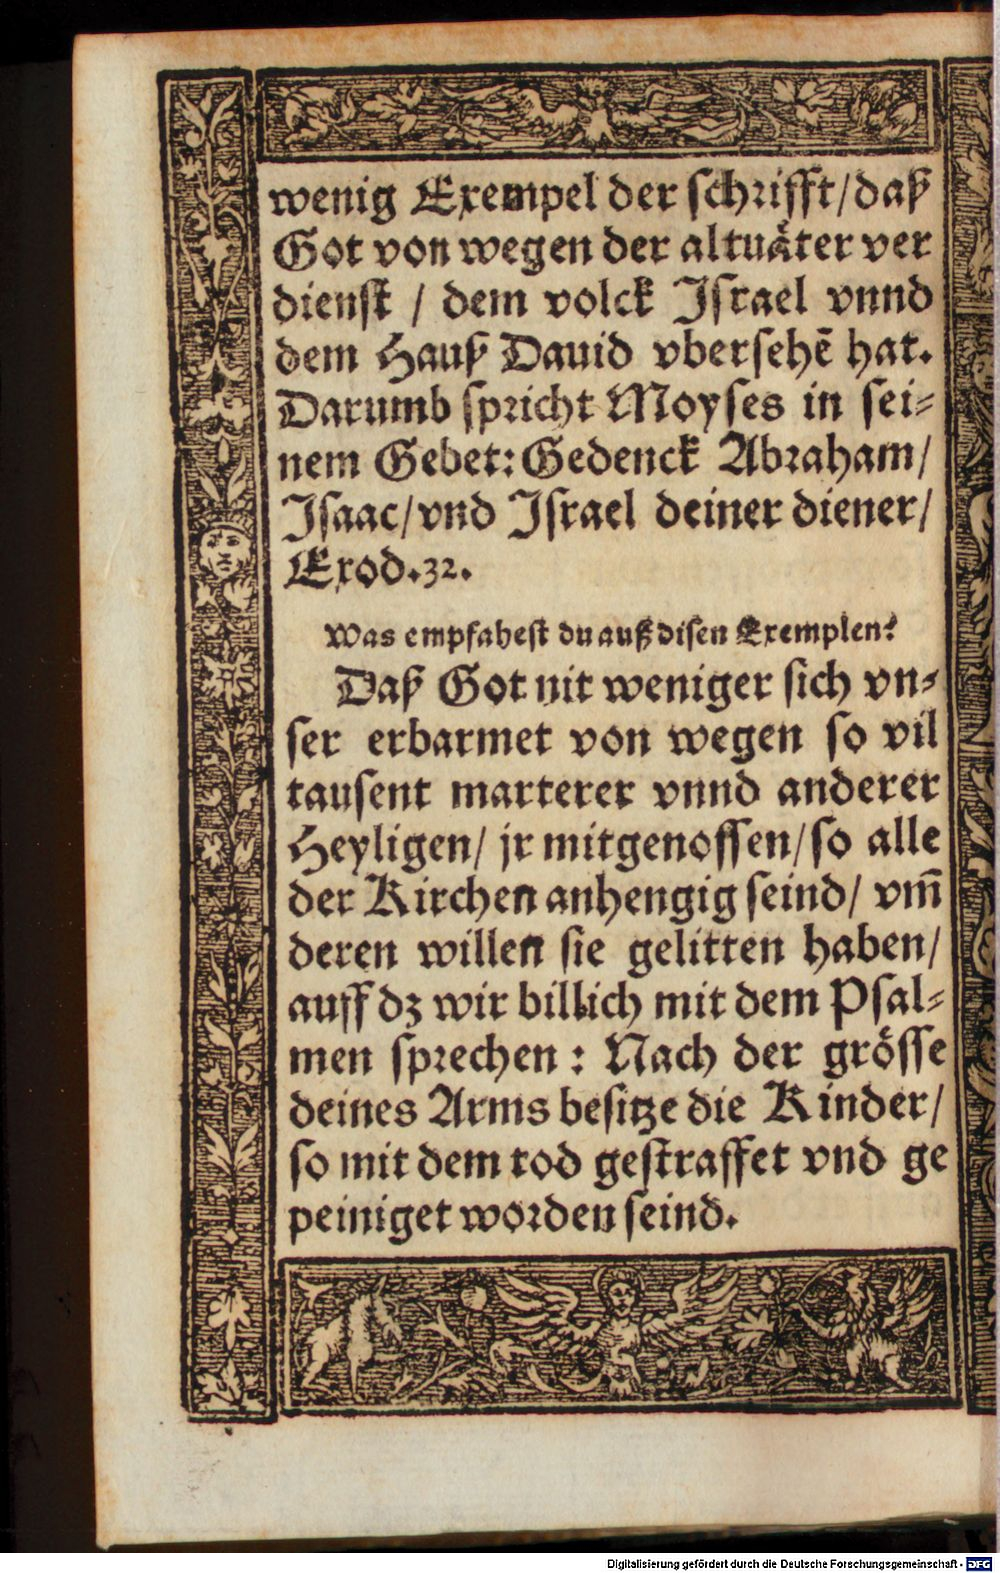 wenig Exempel der schrifft/daß
Got von wegen der altuåter ver
dienst / dem volck Israel vnnd
dem Hauß Dauid vbersehẽ hat.
Darumb spricht Moyses in sei⸗
nem Gebet: Gedenck Abraham/
Isaac/vnd Israel deiner diener/
Exod.32.
Was empfahest du auß disen Exemplen?
Daß Got nit weniger sich vn⸗
ser erbarmet von wegen so vil
tausent marterer vnnd anderer
Heyligen/ jr mitgenossen/so alle
der Kirchen anhengig seind/ vm̃
deren willen sie gelitten haben/
auff dz wir billich mit dem Psal⸗
men sprechen : Nach der grösse
deines Arms besitze die Kinder/
so mit dem tod gestraffet vnd ge
peiniget worden seind.
Digitalisierung gefördert durch die Deutsche Forschungsgemeinschaft - DFG